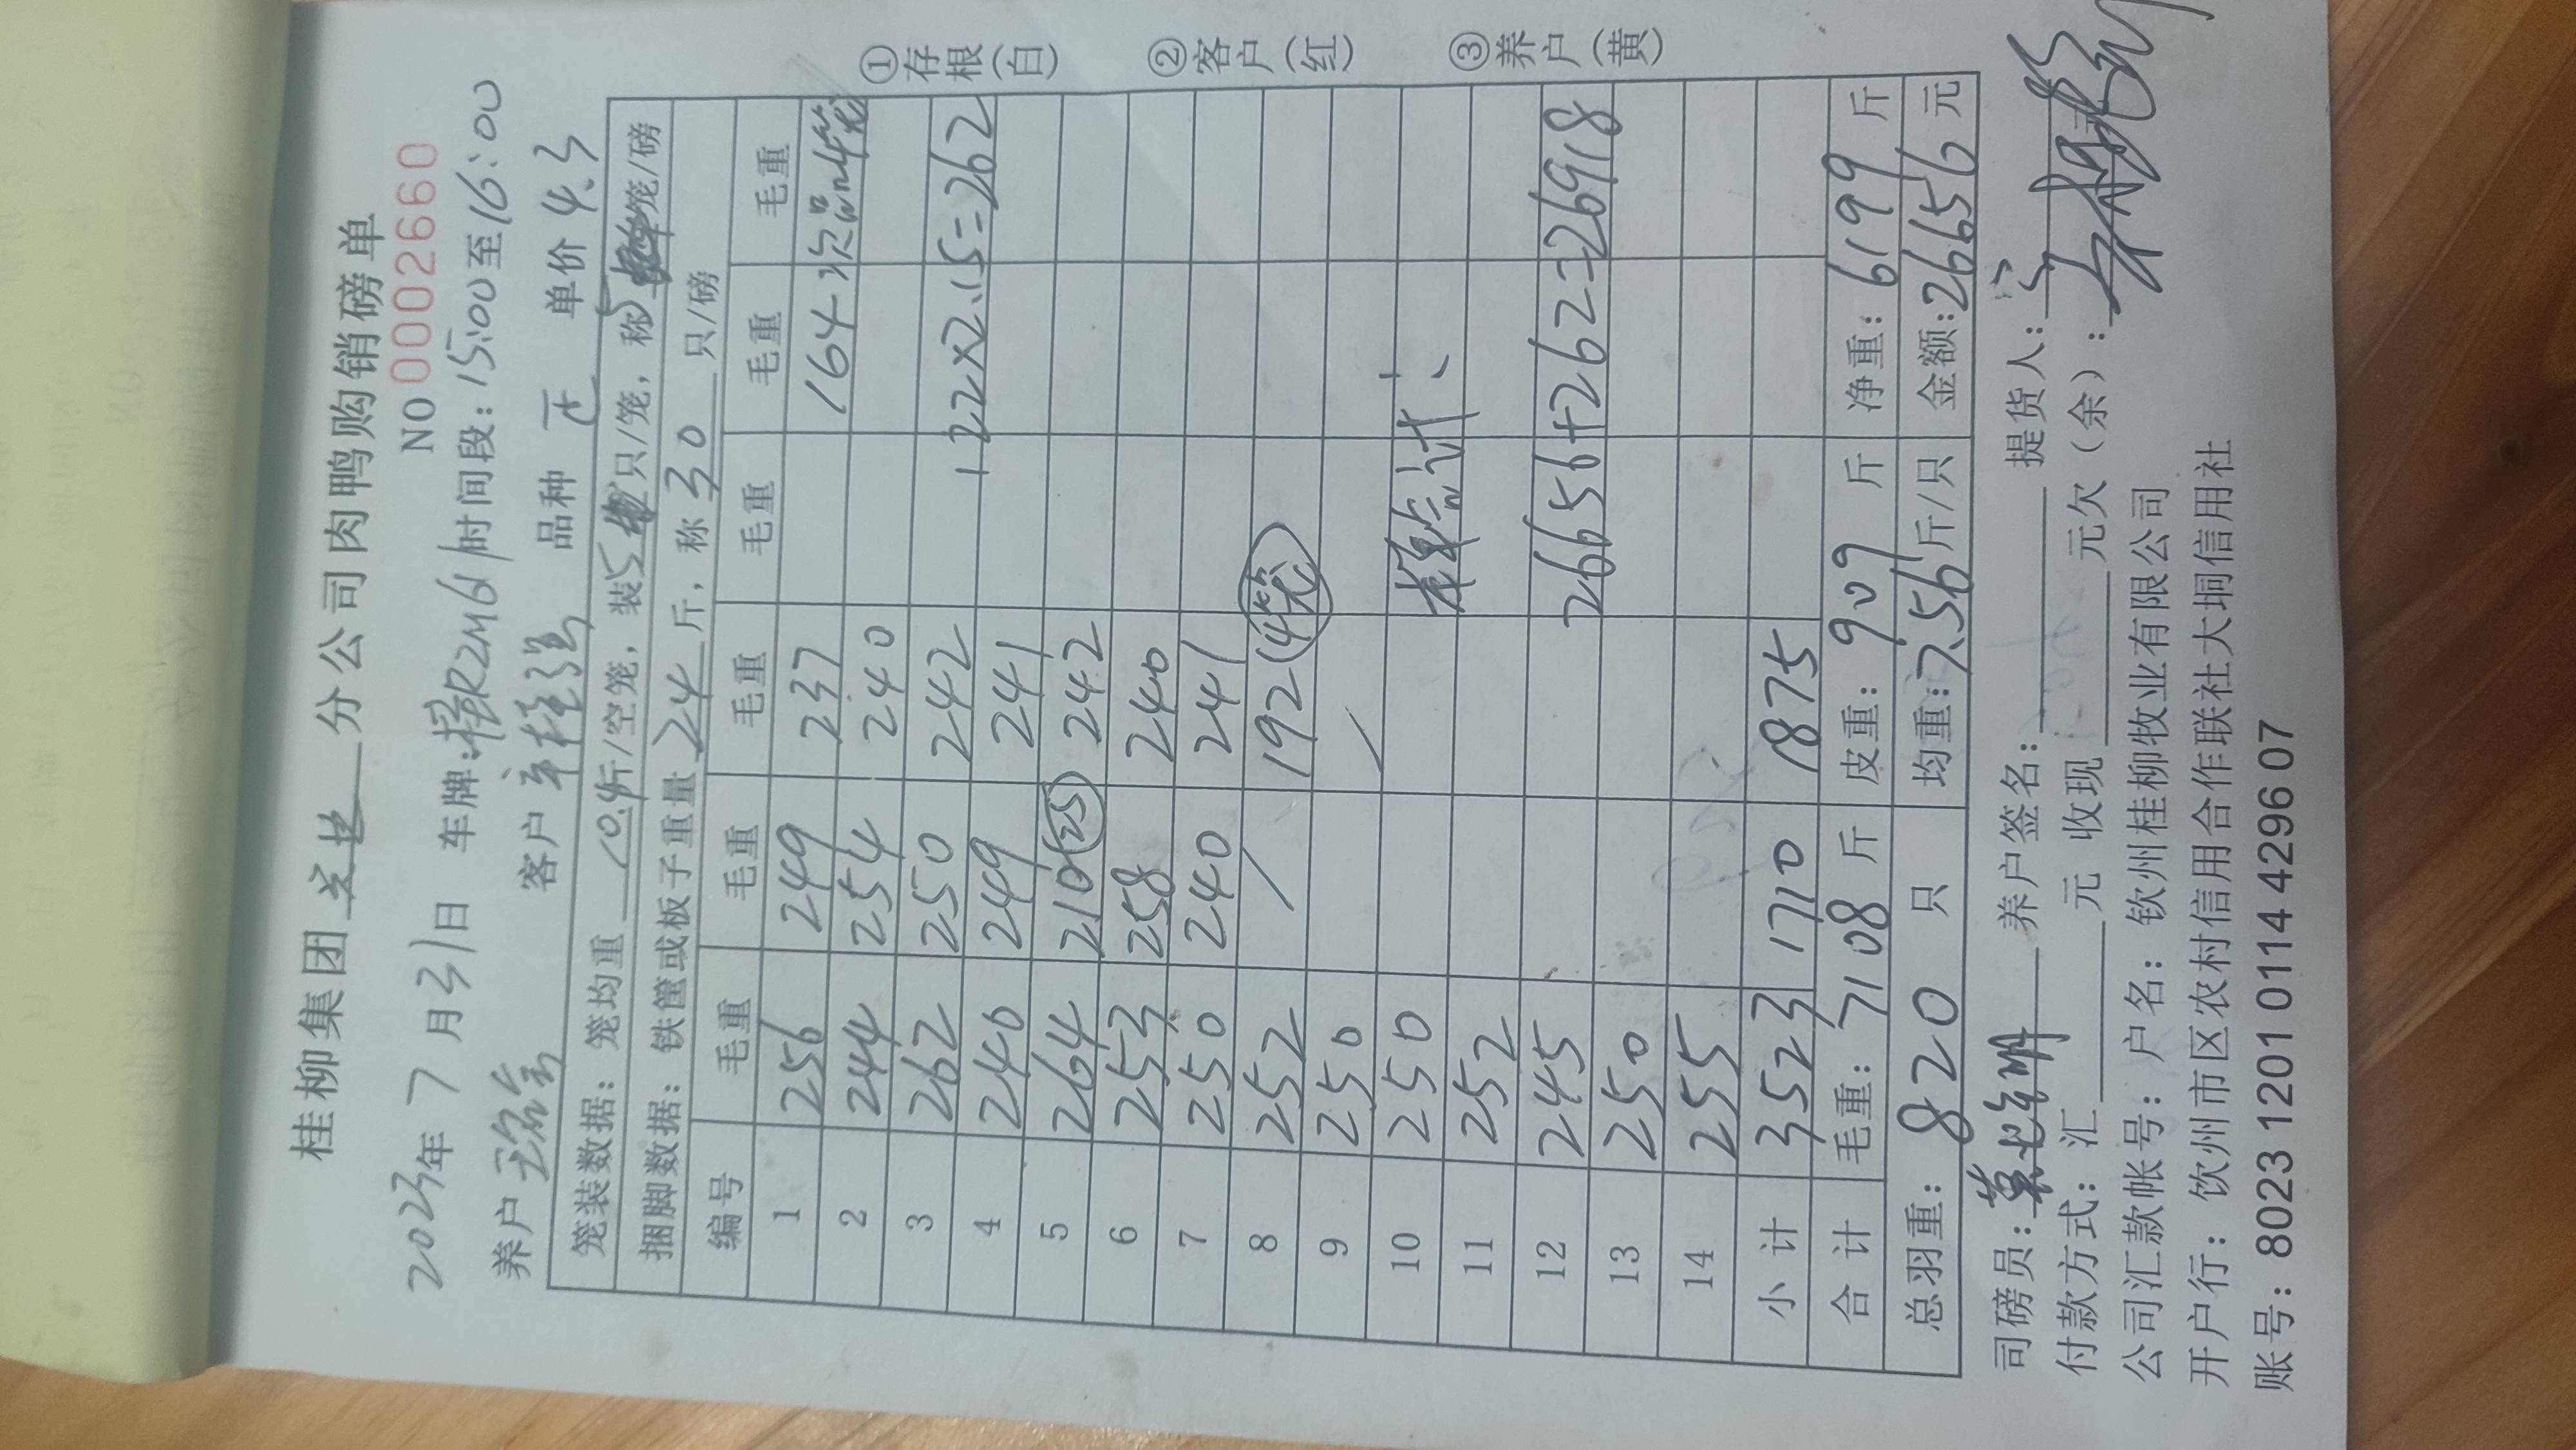 桂柳集团 分公司肉鸭购销磅单
NO 0002660
2023年 7 月 31日 车牌: 桂R2M61 时间段: 15:00 至 16:00
养户 客户 品种 正 单价 4.3
笼装数据: 笼均重 10.斤/空笼, 装5只/笼, 称5笼/磅
捆脚数据: 铁筐或板子重量 24 斤, 称 30 只/磅
编号 毛重 毛重 毛重 毛重 毛重 毛重
1 256 249 237 164 次品 4笼
2 244 254 240
3 262 250 242 122×2.15=262
4 240 249 241
5 264 210(25) 242
6 253 258 240
7 250 240 241
8 252 / 192(4笼)
9 250 /
10 250 合计:
11 252
12 245 26656+262=26918
13 250
14 255
小计 3523 1710 1875
合计 毛重: 7108 斤 皮重: 909 斤 净重: 6199 斤
总羽重: 820 只 均重: 7.56 斤/只 金额: 26656 元
司磅员: 养户签名: 提货人:
付款方式: 汇 元 收现 元欠(余):
公司汇款帐号: 户名: 钦州桂柳牧业有限公司
开户行: 钦州市区农村信用合作联社大垌信用社
账号: 8023 1201 0114 4296 07
①存根(白)
②客户(红)
③养户(黄)